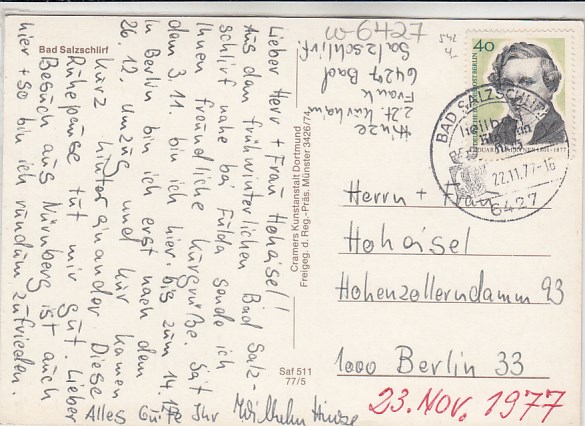 Bad Salzschlirf
Lieber Herr + Frau Hohaisel!
Aus dem frühwinterlichen Bad Salz-
schlirf nahe bei Fulda sende ich
Ihnen freundliche Kurgrüße. Seit
dem 3.11. bin ich hier bis zum 14.12.
In Berlin bin ich erst nach dem
26.12. Umzug und Kur kamen
kurz hintereinander. Diese
Ruhepause tut mir gut. Lieber
Besuch aus Nürnberg ist auch
hier + so bin ich rundum zufrieden.
Alles Gute Ihr Wilhelm Hinze
Cramers Kunstanstalt Dortmund
Freigeg. d. Reg.-Präs. Münster 3426/74
Saf 511
77/5
Hinze
z.Zt. Kurhaus
Frank
6427 Bad
Salzschlirf
w 6427
40
BAD SALZSCHLIRF
22.11.77-16
6427
Herrn + Frau
Hohaisel
Hohenzollerndamm 93
1000 Berlin 33
23. NOV. 1977